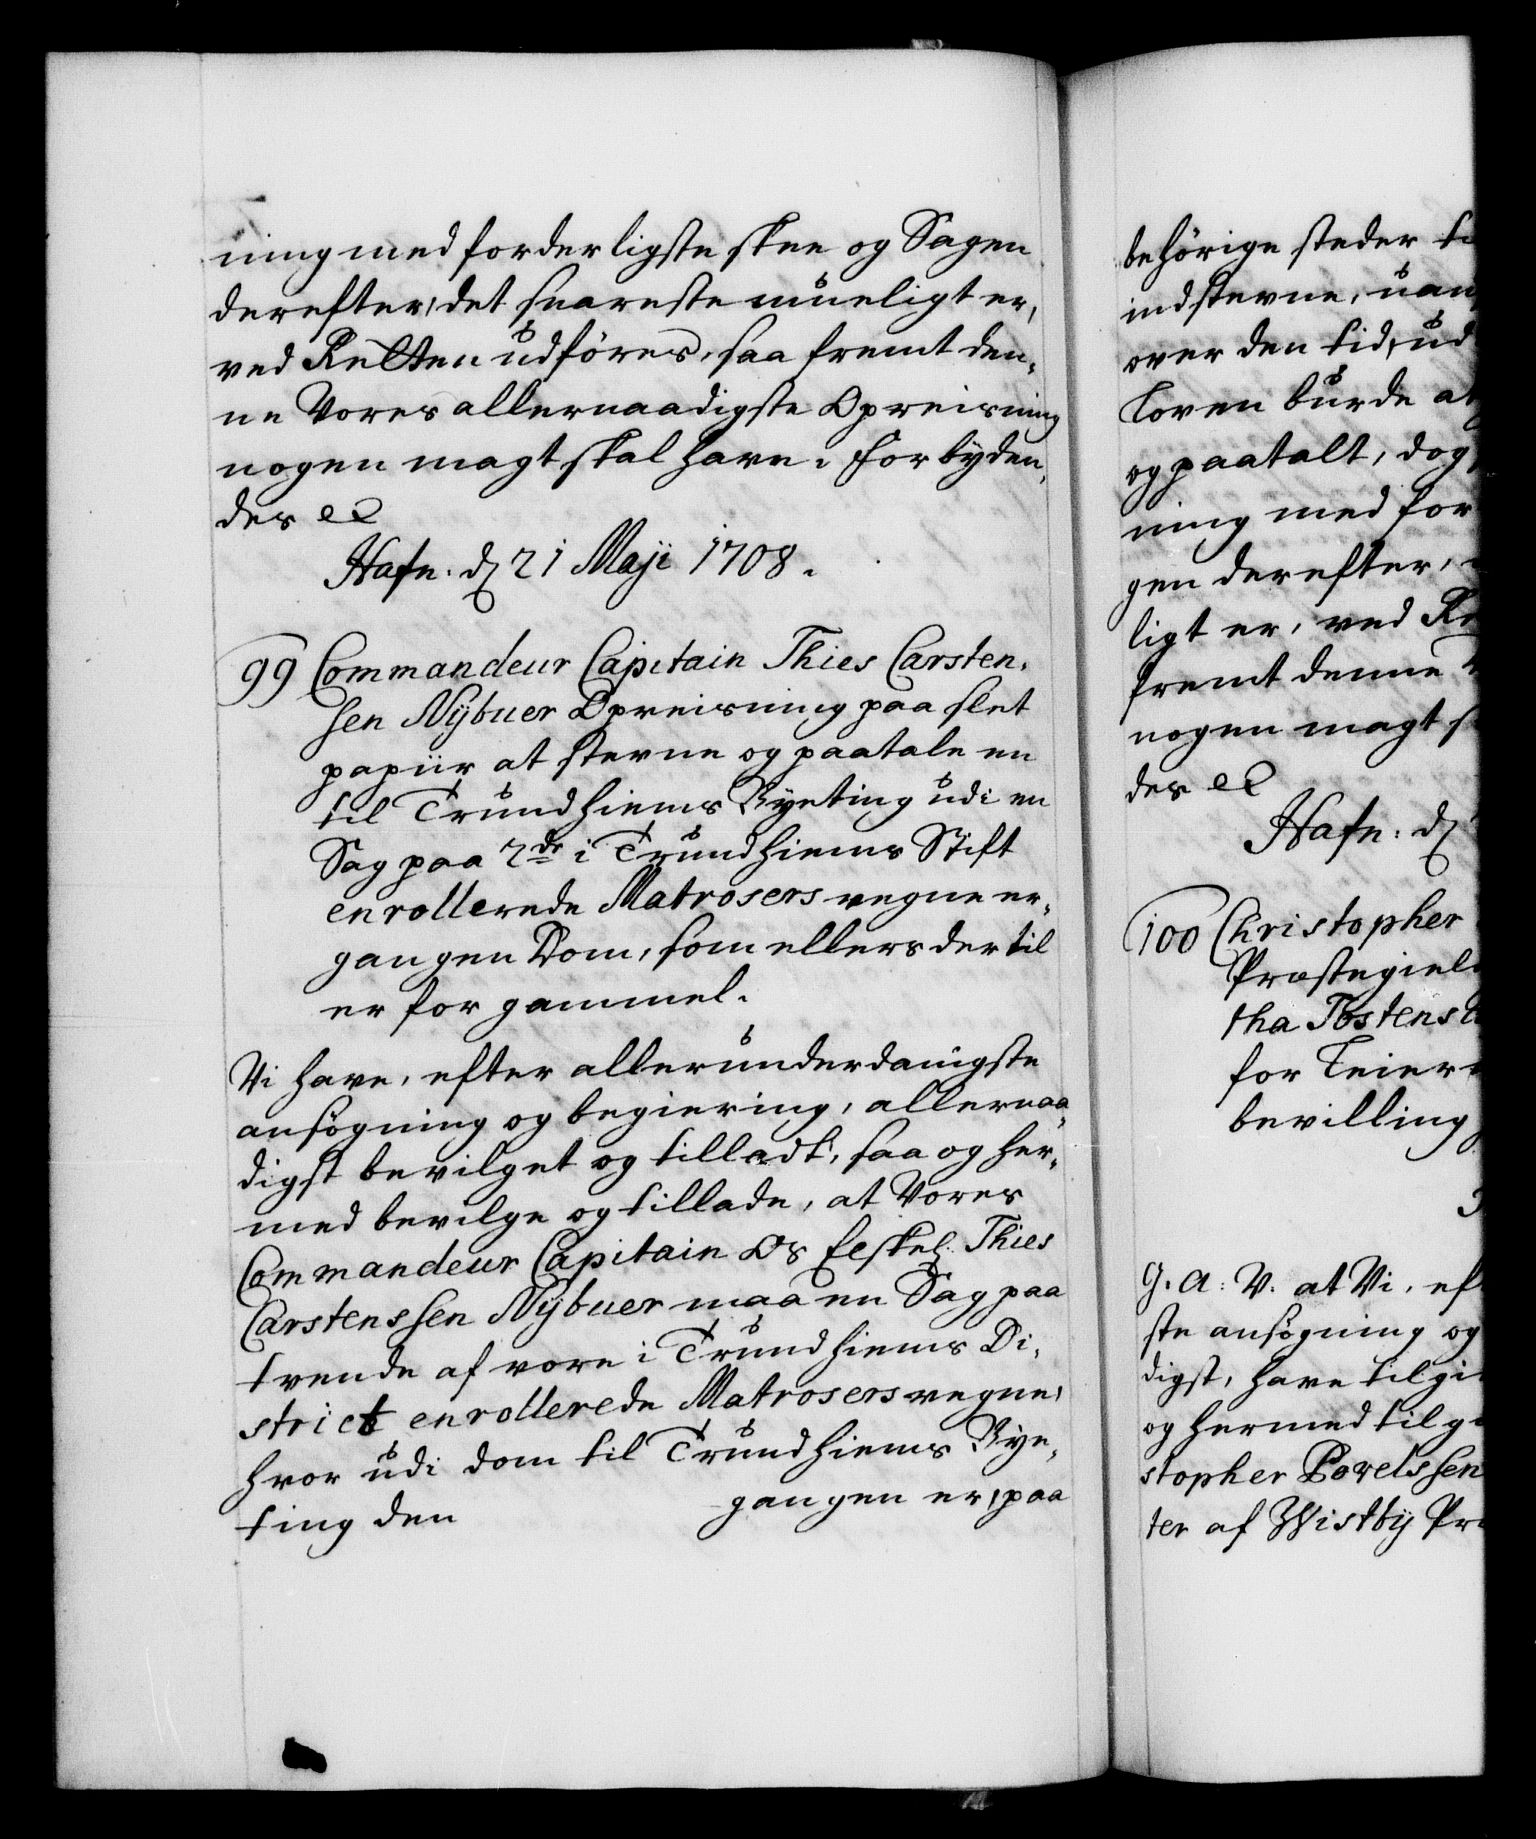 ning med forderligste skee og Sagen
derefter, det snareste mueligt er,
ved Retten udföres, saa fremt den-
ne Vores allernaadigste Opreisning
nogen magt skal have. Forbyden-
des etc
Hafn: d 21 Maji 1708.
99 Commandeur Capitain Thies Carsten-
sen Nÿbuer Opreisning paa slet
papiir at stevne og paatale en
til Trundhiems Byeting udi en
Sag paa 2de i Trundhiems Stift
enrollerede Matrosers vegne er-
gangen Dom, som ellers dertil
er for gammel.
Vi have, efter allerunderdanigste
ansögning og begiering, allernaa-
digst bevilget og tilladt, saa og her-
med bevilge og tillade, at Vores
Commandeur Capitain Os Elskel. Thies
Carstenssen Nÿbuer maa en Sag paa
tvende af vore i Trundhiems Di-
strict enrollerede Matrosers vegne,
hvor udi dom til Trundhiems Bye-
ting den gangen er, paa
behörige steder
indstevne, uan
over den tid, ud
Loven burde at
og paatalt, dog
ning med for
gen derefter,
ligt er, ved Re
fremt denne
nogen magt s
des etc
Hafn: d
100 Christopher
Præstegield
tha Tostens
for Leier
bevilling
G. A: V. at Vi, ef
ste ansögning og
digst, have tilgi
og hermed tilgi
stopher Povelssen
ter af Wistbÿ Præ